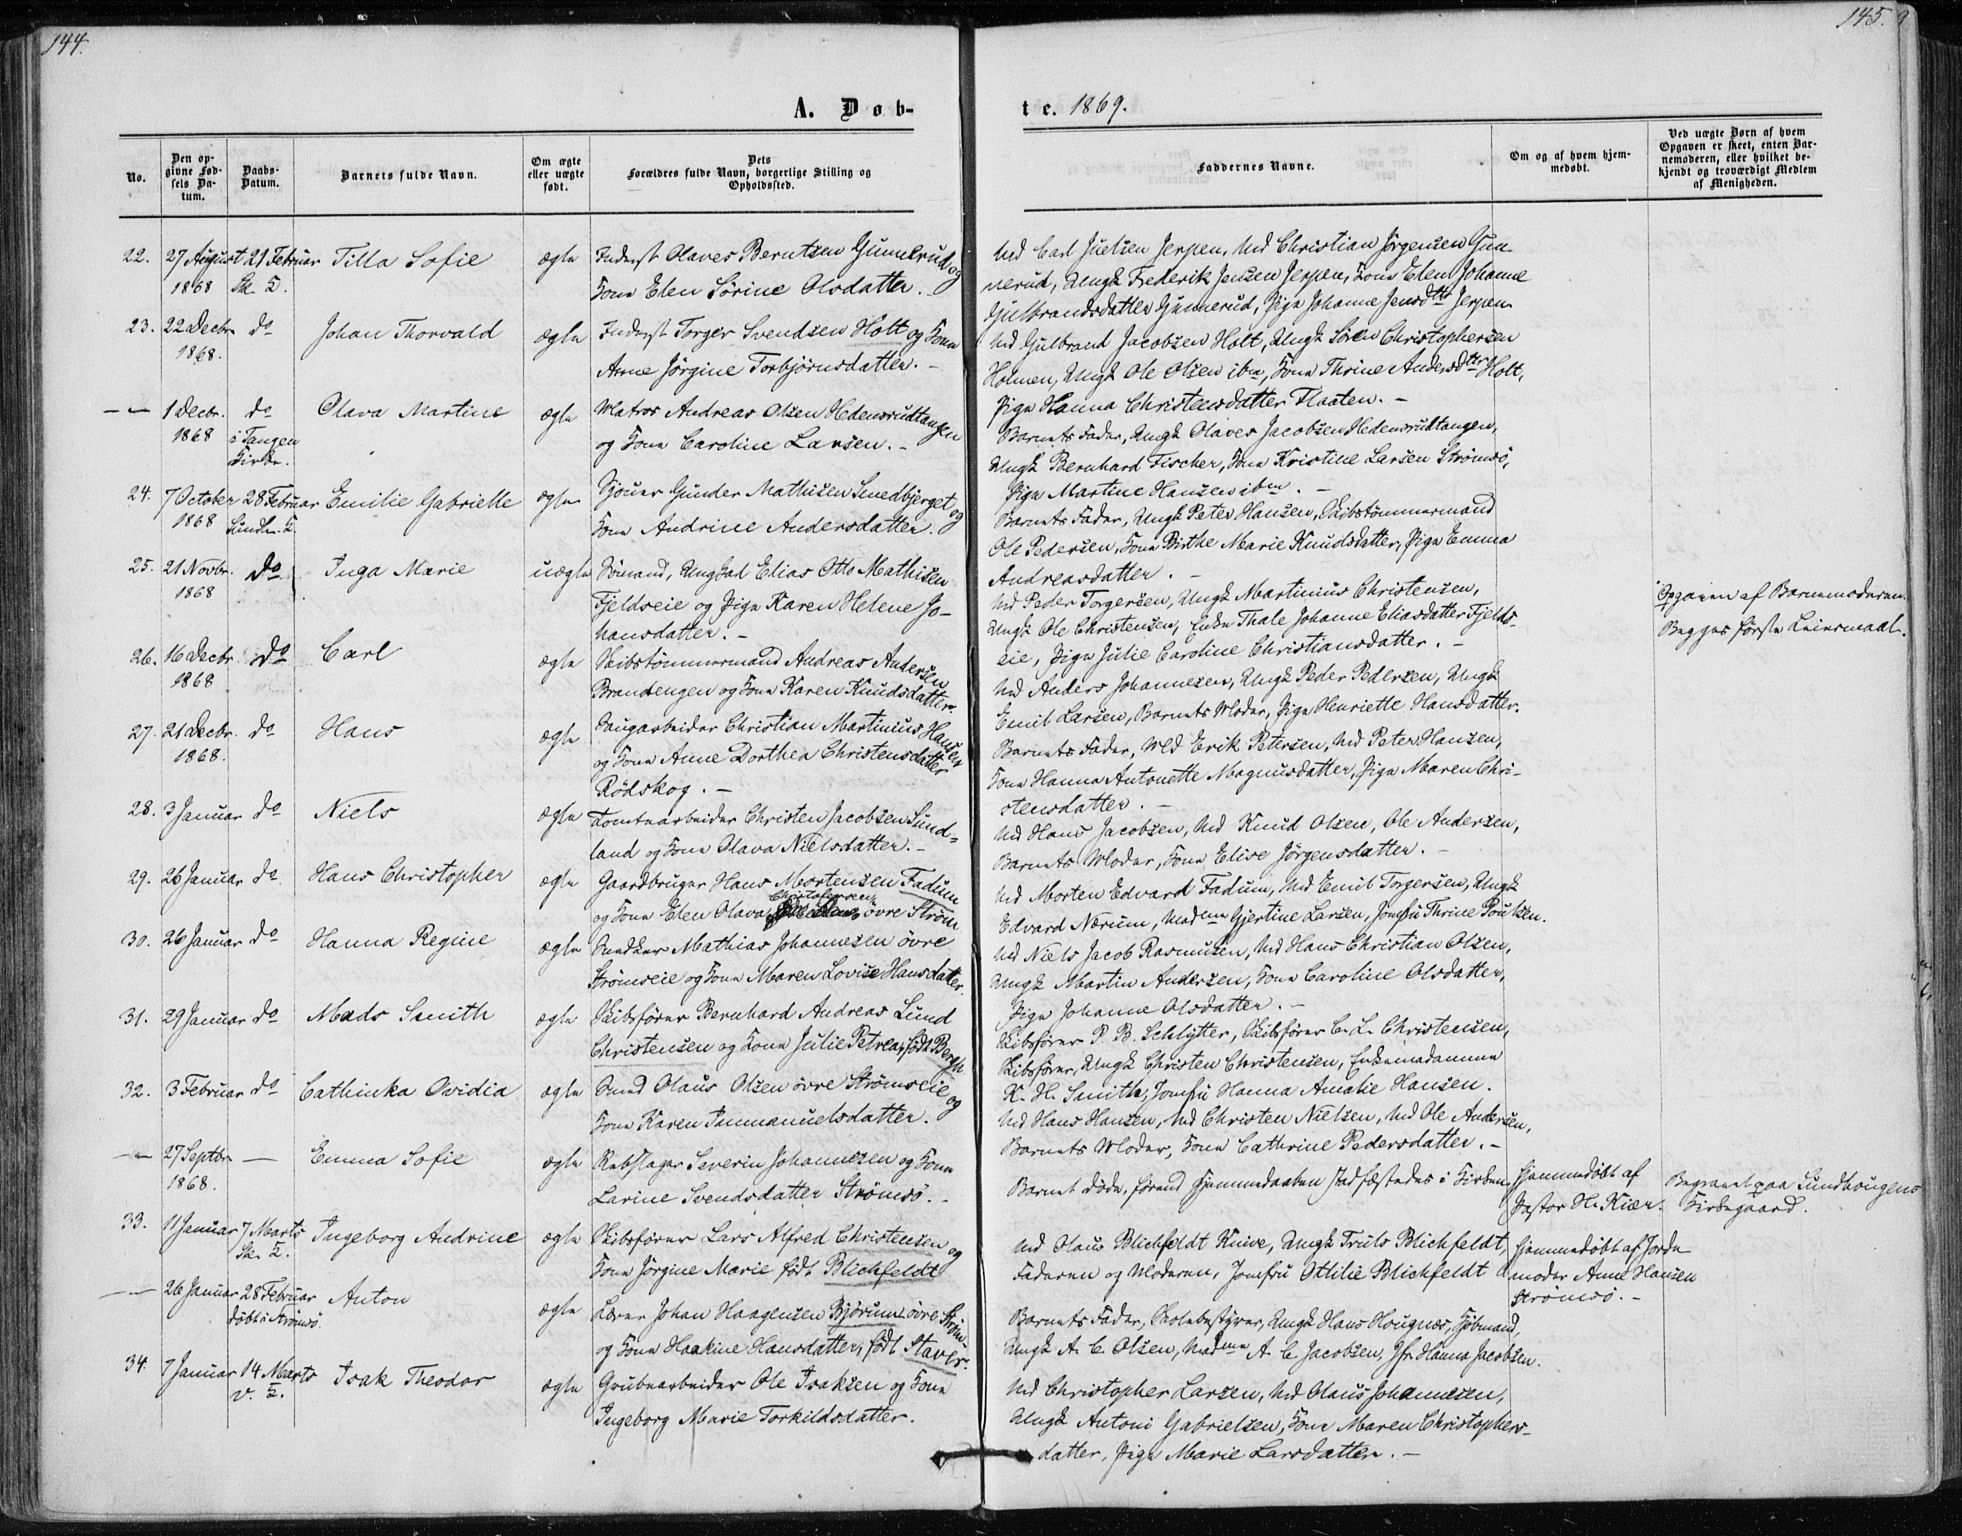 144.
145.
A. Døb-
te. 1869.
No.
Den op-
givne Fød-
sels Da-
tum.
Daabs-
Datum.
Barnets fulde Navn.
Om ægte
eller uægte
født.
Dets
Forældres fulde Navn, borgerlige Stilling og
Opholdssted.
Faddernes Navne.
Om og af hvem hjem-
medøbt.
Ved uægte Børn af hvem
Opgaven er skeet, enten Bar-
nemoderen, eller hvilket be-
kjendt og troværdigt Medlem
af Menigheden.
22. 27 August 21 Februar Tilla Sofie ægte Inderst Olaves Berntsen Gunnerud og
1868 Sk. K. Kone Elen Sørine Olsdatter. -
Ud Carl Juelsen Jerpen, Ud Christian Jørgensen Gun-
nerud, Ungk Frederik Jensen Jerpen, Kone Elen Johanne
Gulbrandsdatter Gunnerud, Pige Johanne Jensdtr Jerpen.
23. 22 Decbr. do Johan Thorvald ægte Inderst Torger Svendsen Holt og Kone
1868. Anne Jørgine Torbjørnsdatter. -
Ud Gulbrand Jacobsen Holt, Ungk Søren Christophersen
Holmen, Ungk Ole Olsen ibm, Kone Thrine Andersdtr Holt,
Pige Hanna Christensdatter Flaaten. -
-"- 1 Decbr. do Olava Martine ægte Matros Andreas Olsen Hedensrudtangen
1868 i Tangen og Kone Caroline Larsen. -
Kirke.
Barnets Fader, Ungk Olaves Jacobsen Hedensrudtangen,
Ungk Bernhard Fischer, Kone Kristine Larsen Strømsø,
Pige Martine Hansen ibm. -
24. 7 October 28 Februar Emilie Gabrielle ægte Sjouer Gunder Mathisen Smedbjerget og
1868 Sundh. K. Kone Andrine Andersdatter.
Barnets Fader, Ungk Peter Hansen, Skibstømmermand
Ole Pedersen, Kone Birthe Marie Knudsdatter, Pige Emma
Andreasdatter. -
25. 21 Novbr. do Inga Marie uægte Sømand, Ungkal Elias Otto Mathisen
1868 Fjeldseie og Pige Karen Helene Jo-
hansdatter. -
Ud Peder Torgersen, Ungk Martinius Christensen,
Ungk Ole Christensen, Enke Thale Johanne Eliasdatter Fjelds-
eie, Pige Julie Caroline Christiansdatter. -
Opgaven af Barnemoderen.
Begges første Leiermaal.
26. 16 Decbr. do Carl ægte Skibstømmermand Andreas Andersen
1868 Brandengen og Kone Karen Knudsdatter.
Ud Anders Johannesen, Ungk Peder Pedersen, Ungk
Emil Larsen, Barnets Moder, Pige Henriette Hansdatter.
27. 21 Decbr. do Hans ægte Saugarbeider Christian Martinius Hansen
1868. og Kone Anne Dorthea Christensdatter
Rødskog. -
Barnets Fader, Ud Erik Petersen, Ud Peter Hansen,
Kone Hanna Antonette Magnusdatter, Pige Maren Chri-
stensdatter. -
28. 3 Januar do Niels ægte Tomtearbeider Christen Jacobsen Sund-
land og Kone Olava Nielsdatter. -
Ud Hans Jacobsen, Ud Knud Olsen, Ole Andersen,
Barnets Moder, Kone Elise Jørgensdatter. -
29. 26 Januar do Hans Christopher ægte Gaardbruger Hans Mortensen Fadum
og Kone Elen Olava Christophersen øvre Strøm
Ud Morten Edvard Fadum, Ud Emil Torgersen, Ungk
Edvard Nærum, Madme Gjertine Larsen, Jomfru Thrine Poulsen.
30. 26 Januar do Hanna Regine ægte Snedker Mathias Johannesen øvre
Strømseie og Kone Maren Lovise Hansdatter.
Ud Niels Jacob Rasmusen, Ud Hans Christian Olsen,
Ungk Martin Andersen, Kone Caroline Olsdatter,
Pige Johanne Olsdatter. -
31. 29 Januar do Mads Smith ægte Skibsfører Bernhard Andreas Lund
Christensen og Kone Julie Petrea, født Bergh
Skibsfører P. B. Schlytter, Skibsfører C. L. Christensen,
Skibsfører, Ungk Christen Christensen, Enkemadamme
K. H. Smith, Jomfru Hanna Amalie Hansen.
32. 3 Februar do Cathinka Ovidia ægte Svend Olaus Olsen øvre Strømseie og
Kone Karen Immanuelsdatter.
Ud Hans Hansen, Ud Christen Nielsen, Ud Ole Andersen,
Barnets Moder, Kone Cathrine Pedersdatter. -
-"- 27 Septbr. — Emma Sofie ægte Rebslager Severin Johannesen og Kone
1868. Larine Svendsdatter Strømsø. -
Barnet døde, førend Hjemmedaaben stadfæstedes i Kirken
Hjemmedøbt af
Pastor H. Kiær.
Begravet paa Sundhougens
Kirkegaard.
33. 11 Januar 7 Marts Ingeborg Andrine ægte Skibsfører Lars Alfred Christensen og
Sk. K. Kone Jørgine Marie født Blichfeldt
Ud Olaus Blichfeldt Knive, Ungk Truls Blichfeldt,
Faderen og Moderen, Jomfru Ottilie Blichfeldt
Hjemmedøbt af Jorde-
moder Anne Hansen
Strømsø. -
-"- 26 Januar 28 Februar Anton ægte Lærer Johan Haagensen Bjørum øvre Strøm
døbt i Strømsø. og Kone Haakine Hansdatter, født Staver.
Barnets Fader, Skolebestyrer, Ungk Hans Hougnæs, Kjøbmand,
Ungk A. C. Olsen, Madme A. C. Jacobsen, Jfr. Hanna Jacobsen.
34. 7 Januar 14 Marts Isak Theodor ægte Grubearbeider Ole Isaksen og Kone
v. K. Ingeborg Marie Torkildsdatter.
Ud Christopher Larsen, Ud Olaus Johannesen,
Ungk Antoni Gabrielsen, Kone Maren Christophers-
datter, Pige Marie Larsdatter. -